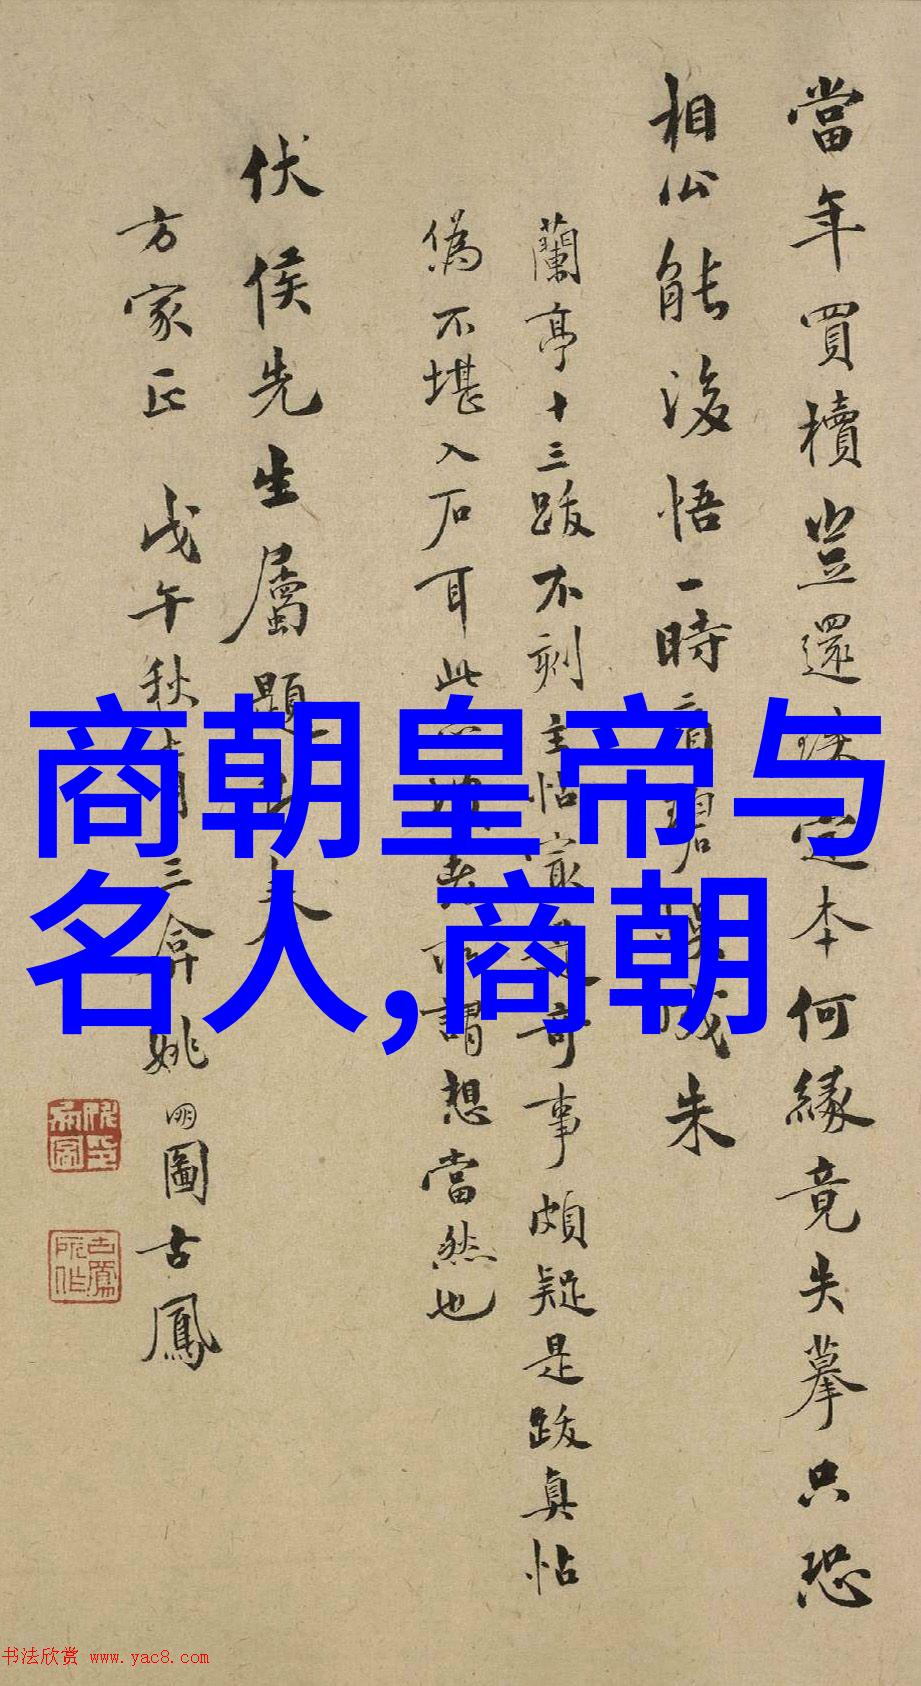 當年買櫝豈還珠定本何緣竟失摹只恐
相公能後悟一時看碧成朱
蘭亭十三跋不刻主帖最是奇事頗疑是跋真帖
偽不堪入石耳此謂想當然也
伏侯先生屬題
方家正 戊午秋三弇姚明圖古鳳
商朝皇帝与
名人,商朝
书法欣赏 www.yac8.com